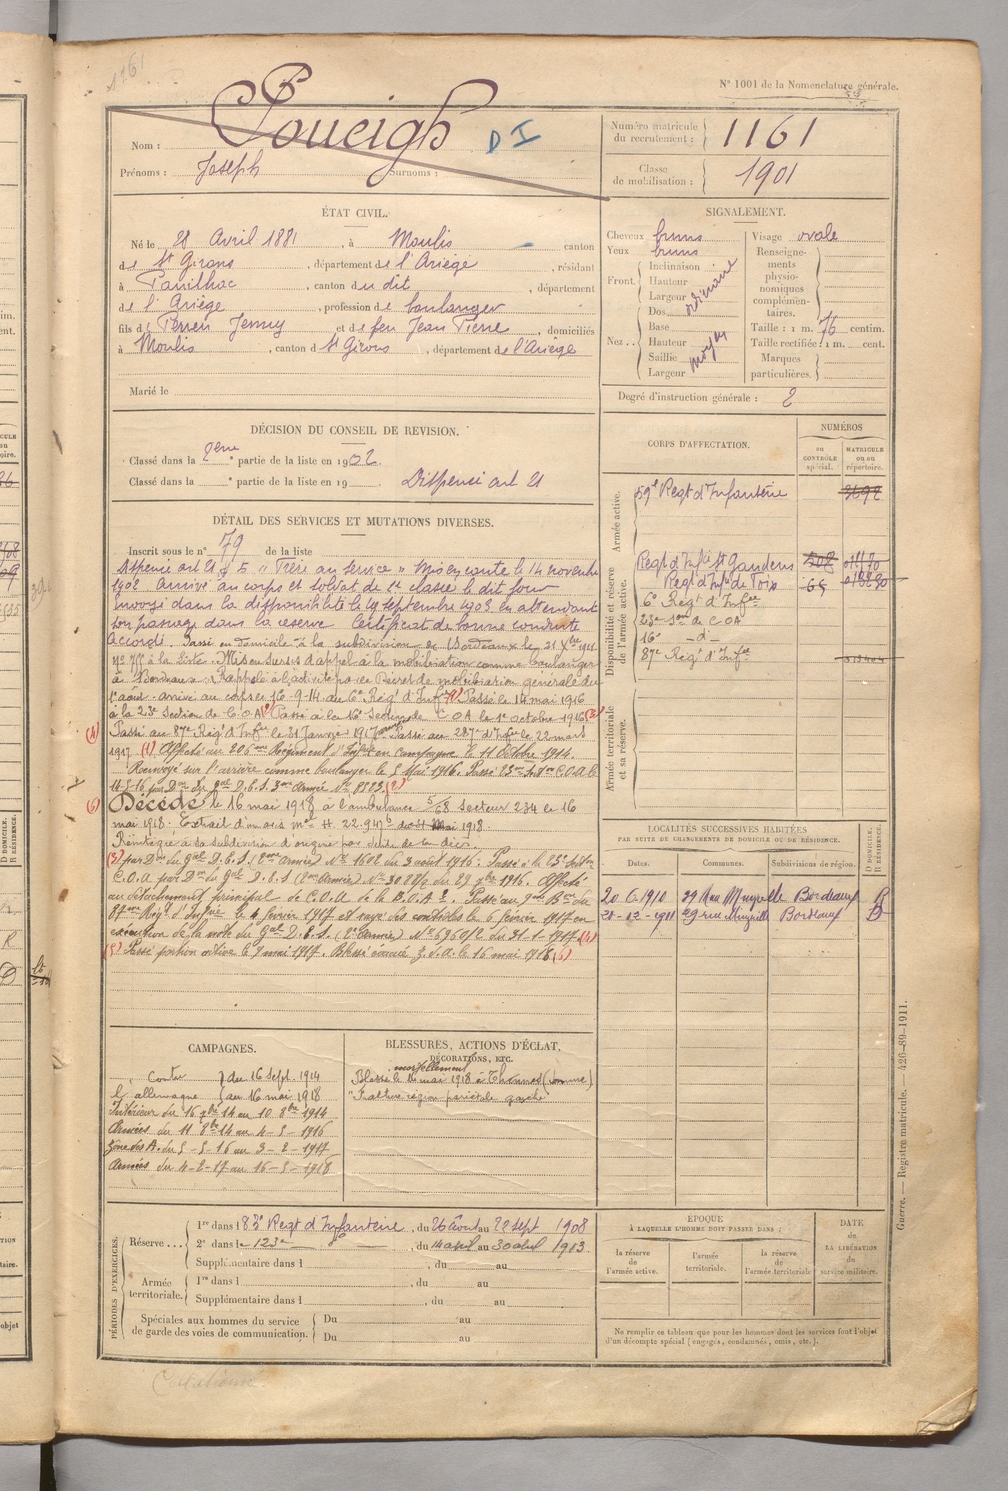 1161
N° 1001 de la Nomenclature générale.
Nom : Poueigh D I
Prénoms : Joseph Surnoms :
Numéro matricule du recrutement : 1161
Classe de mobilisation : 1901
ÉTAT CIVIL.
Né le 28 Avril 1881, à Moulis canton
de St Girons, département de l'Ariège, résidant
à, canton du dit, département
de l'Ariège, profession de boulanger
fils de Jenny et de feu Jean Pierre, domiciliés
à Moulis, canton d St Girons, département de l'Ariège
Marié le
SIGNALEMENT.
Cheveux bruns
Yeux bruns
Front. Inclinaison
Hauteur
Largeur
ordinaire
Nez.. Dos
Base
Hauteur
Saillie
Largeur
moyen
Visage ovale
Renseignements physionomiques complémentaires.
Taille : 1 m. 76 centim.
Taille rectifiée : 1 m. cent.
Marques particulières.
Degré d'instruction générale : 2
DÉCISION DU CONSEIL DE REVISION.
Classé dans la 2eme partie de la liste en 1902.
Classé dans la e partie de la liste en 19 Dispensé art 21
DÉTAIL DES SERVICES ET MUTATIONS DIVERSES.
Inscrit sous le n° 79 de la liste
Dispensé art 21 § 5 "Frère au service" Mis en route le 14 novembre
1902. Arrivé au corps et soldat de 2e classe le dit jour
Envoyé dans la disponibilité le 19 septembre 1903 en attendant
son passage dans la réserve Certificat de bonne conduite
Accordé. Passé en domicile à la subdivision de Bordeaux le 21 Xbre 1911
Mis en sursis d'appel à la mobilisation comme boulanger
à Bordeaux. Rappelé à l'activité par le Décret de mobilisation générale du
1er août. arrivé au corps le 16-9-14 au 6e Rég' d'Inf (1) Passé le 14 mai 1916
à la 23e Section de C.O.A (2) Passé à la 16e Section de C O A le 1er octobre 1916 (3)
(4) Passé au 87e Rég' d'Infie le 31 Janvier 1917 Passé au 287e d'Infie le 22 mars
1917 (1) Affecté au 206eme Régiment d'Infie en campagne le 11 Octobre 1914
Renvoyé sur l'arrière comme boulanger le 5 Mai 1916. Passé 23me Son C.O.A le
(6) Décédé le 16 mai 1918 à l'ambulance 5/68 Secteur 234 le 16
mai 1918. Extrait d'un avis
(3) par Dn du Gal D.E.S. (2me Armée) N° 1602 du 3 août 1916. Passé à la 23e Section
C.O.A par Dn du Gal D.E.S (2me Armée) du 29 7bre 1916. Affecté
au détachement principal de C.O.A de la B.O.A 2. Passé au 9me Bon du
87me Rég' d'Infie le 4 février 1917 et rayé des contrôles le 6 février 1917 en
exécution de la note du Gal D.E.S. (2e Armée) N° 6960/2 du 31-1-1917 (4)
(5) Passé position active le 9 mai 1917. Blessé évacué Z. d. A. le 16 mai 1918 (6)
CORPS D'AFFECTATION.
NUMÉROS
au CONTRÔLE spécial.
MATRICULE ou au répertoire.
Armée active.
59e Regt d'Infanterie 3692
Disponibilité et réserve de l'armée active.
Regt d'Infie St Gaudens 508
Regt d'Infie de Foix 65
6e Regt d'Infie
23e Son de C O A
16e — d° —
87e Regt d'Infie
Armée territoriale et sa réserve.
LOCALITÉS SUCCESSIVES HABITÉES
PAR SUITE DE CHANGEMENT DE DOMICILE OU DE RÉSIDENCE.
Dates. Communes. Subdivisions de région. D DOMICILE. R RÉSIDENCE.
20 6 1910 Bordeaux R
21-12-1911 29 rue Bordeaux D
CAMPAGNES.
Contre l'allemagne du 16 Sept. 1914 au 16 mai 1918
Intérieur du 16 7bre 14 au 10 8bre 1914
Armées du 11 8bre 14 au 4-5-1916
Zone des A. du 5-5-16 au 3-2-1917
Armées du 4-2-17 au 16-5-1918
BLESSURES, ACTIONS D'ÉCLAT, DÉCORATIONS, ETC.
mortellement
Blessé le 16 mai 1918 à Thennes (Somme)
Fracture région pariétale gauche
PÉRIODES D'EXERCICES.
Réserve... 1re dans l 83e Regt d'Infanterie, du 26 août au 22 sept 1908
2e dans le 123e d°, du 14 avril au 30 avril 1913
Supplémentaire dans l, du au
Armée territoriale. 1re dans l, du au
Supplémentaire dans l, du au
Spéciales aux hommes du service de garde des voies de communication. Du au
Du au
ÉPOQUE
À LAQUELLE L'HOMME DOIT PASSER DANS :
la réserve de l'armée active.
l'armée territoriale.
la réserve de l'armée territoriale
DATE de LA LIBÉRATION du service militaire.
Ne remplir ce tableau que pour les hommes dont les services font l'objet
d'un décompte spécial (engagés, condamnés, omis, etc.).
Guerre. — Registre matricule. — 426-89-1911.